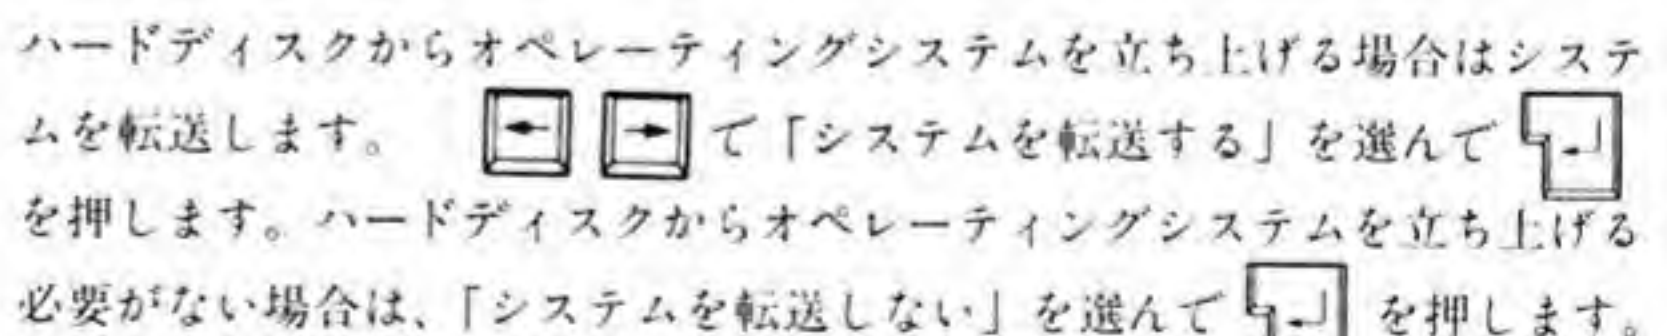 ハードディスクからオペレーティングシステムを立ち上げる場合はシステ
ムを転送します。 ← → で「システムを転送する」を選んで ↵
を押します。ハードディスクからオペレーティングシステムを立ち上げる
必要がない場合は、「システムを転送しない」を選んで ↵ を押します。